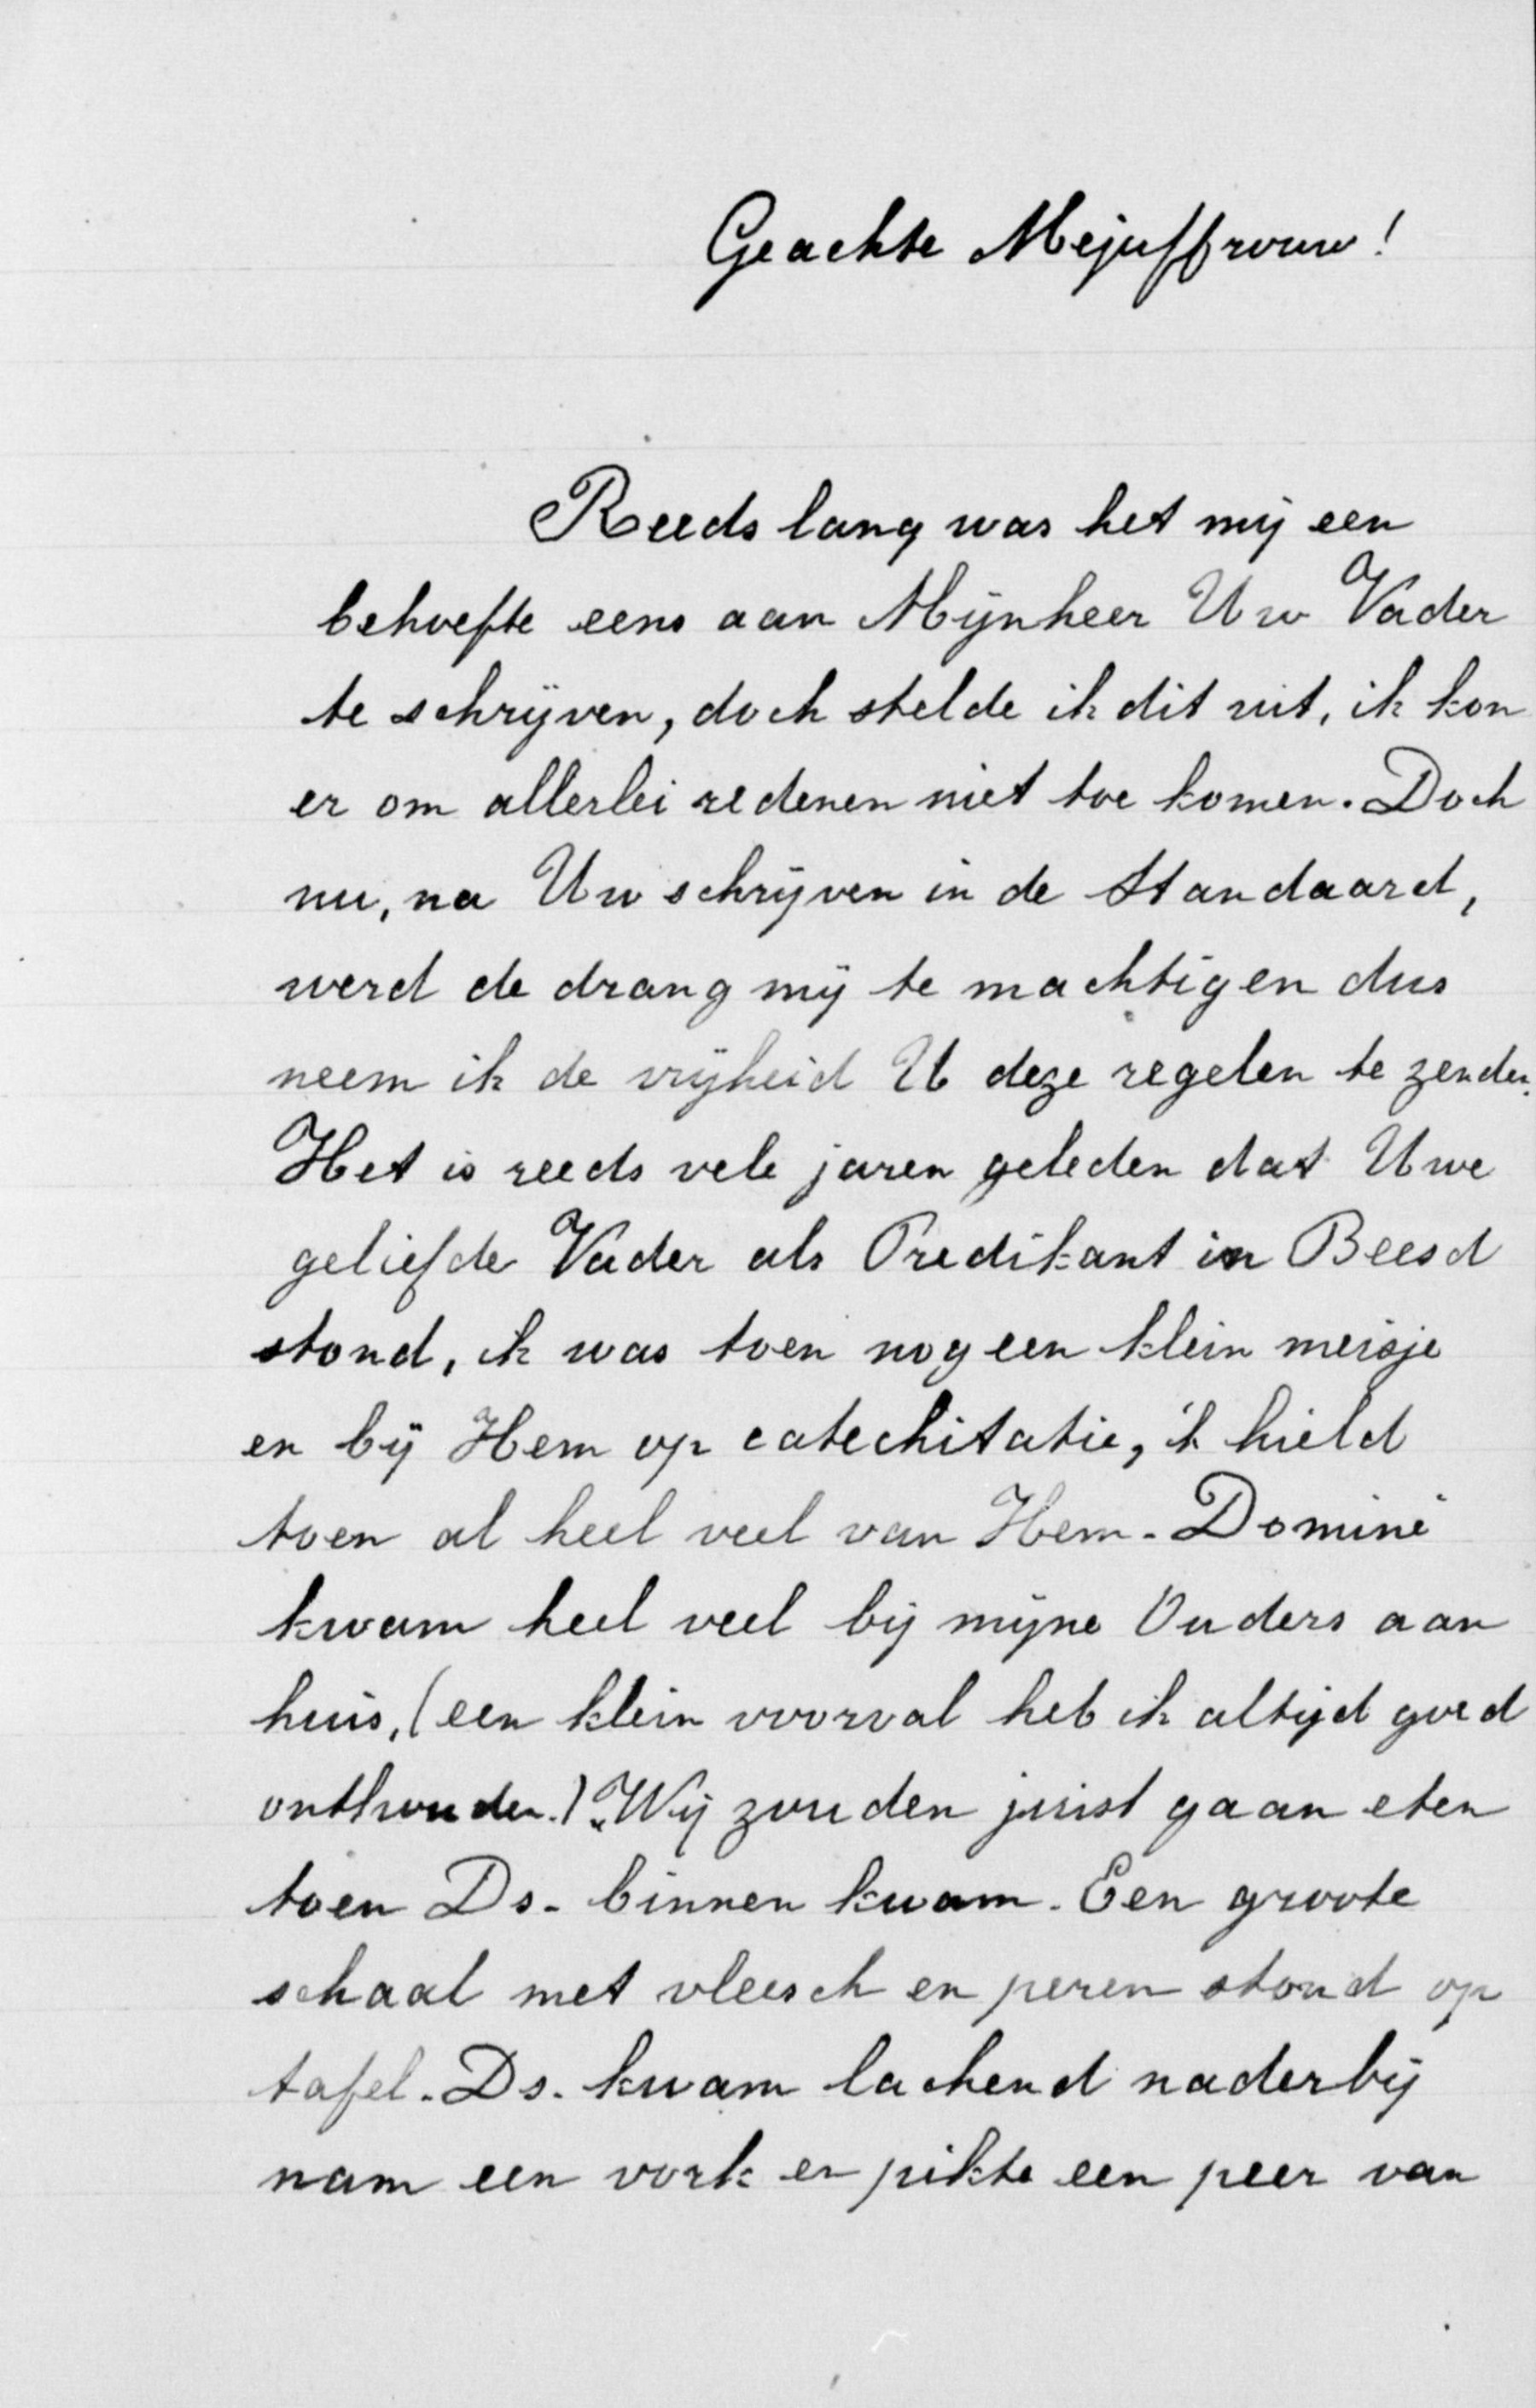 Geachte Mejuffrouw!
Reeds lang was het mij een
behoefte eens aan Mijnheer Uw Vader
te schrijven, doch stelde ik dit uit, ik kon
er om allerlei redenen niet toe komen. Doch
nu, na Uw schrijven in de Standaard,
werd de drang mij te machtig en dus
neem ik de vrijheid U deze regelen te zenden.
Het is reeds vele jaren geleden dat Uwe
geliefde Vader als Predikant in Beesd
stond, ik was toen nog een klein meisje
en bij Hem op catechitatie, 'k hield
toen al heel veel van Hem. Dominé
kwam heel veel bij mijne Ouders aan
huis, (een klein voorval heb ik altijd goed
onthouden.) "Wij zouden juist gaan eten
toen Ds. binnen kwam. Een groote
schaal met vleesch en peren stond op
tafel. Ds. kwam lachend naderbij
nam een vork en pikte een peer van